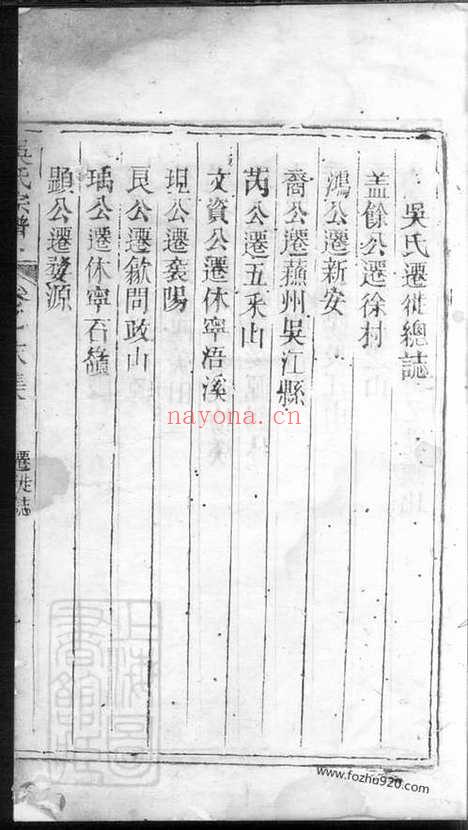 吳氏遷徙總誌
盖餘公遷徐村
鴻公遷新安
裔公遷蘓州吳江縣
芮公遷五釆山
文資公遷休寧浯溪
坦公遷襄陽
艮公遷歙問政山
瑀公遷休寧石嶺
顗公遷婺源
吳氏宗譜
遷徙誌
nayona.cn
www.fozhu920.com